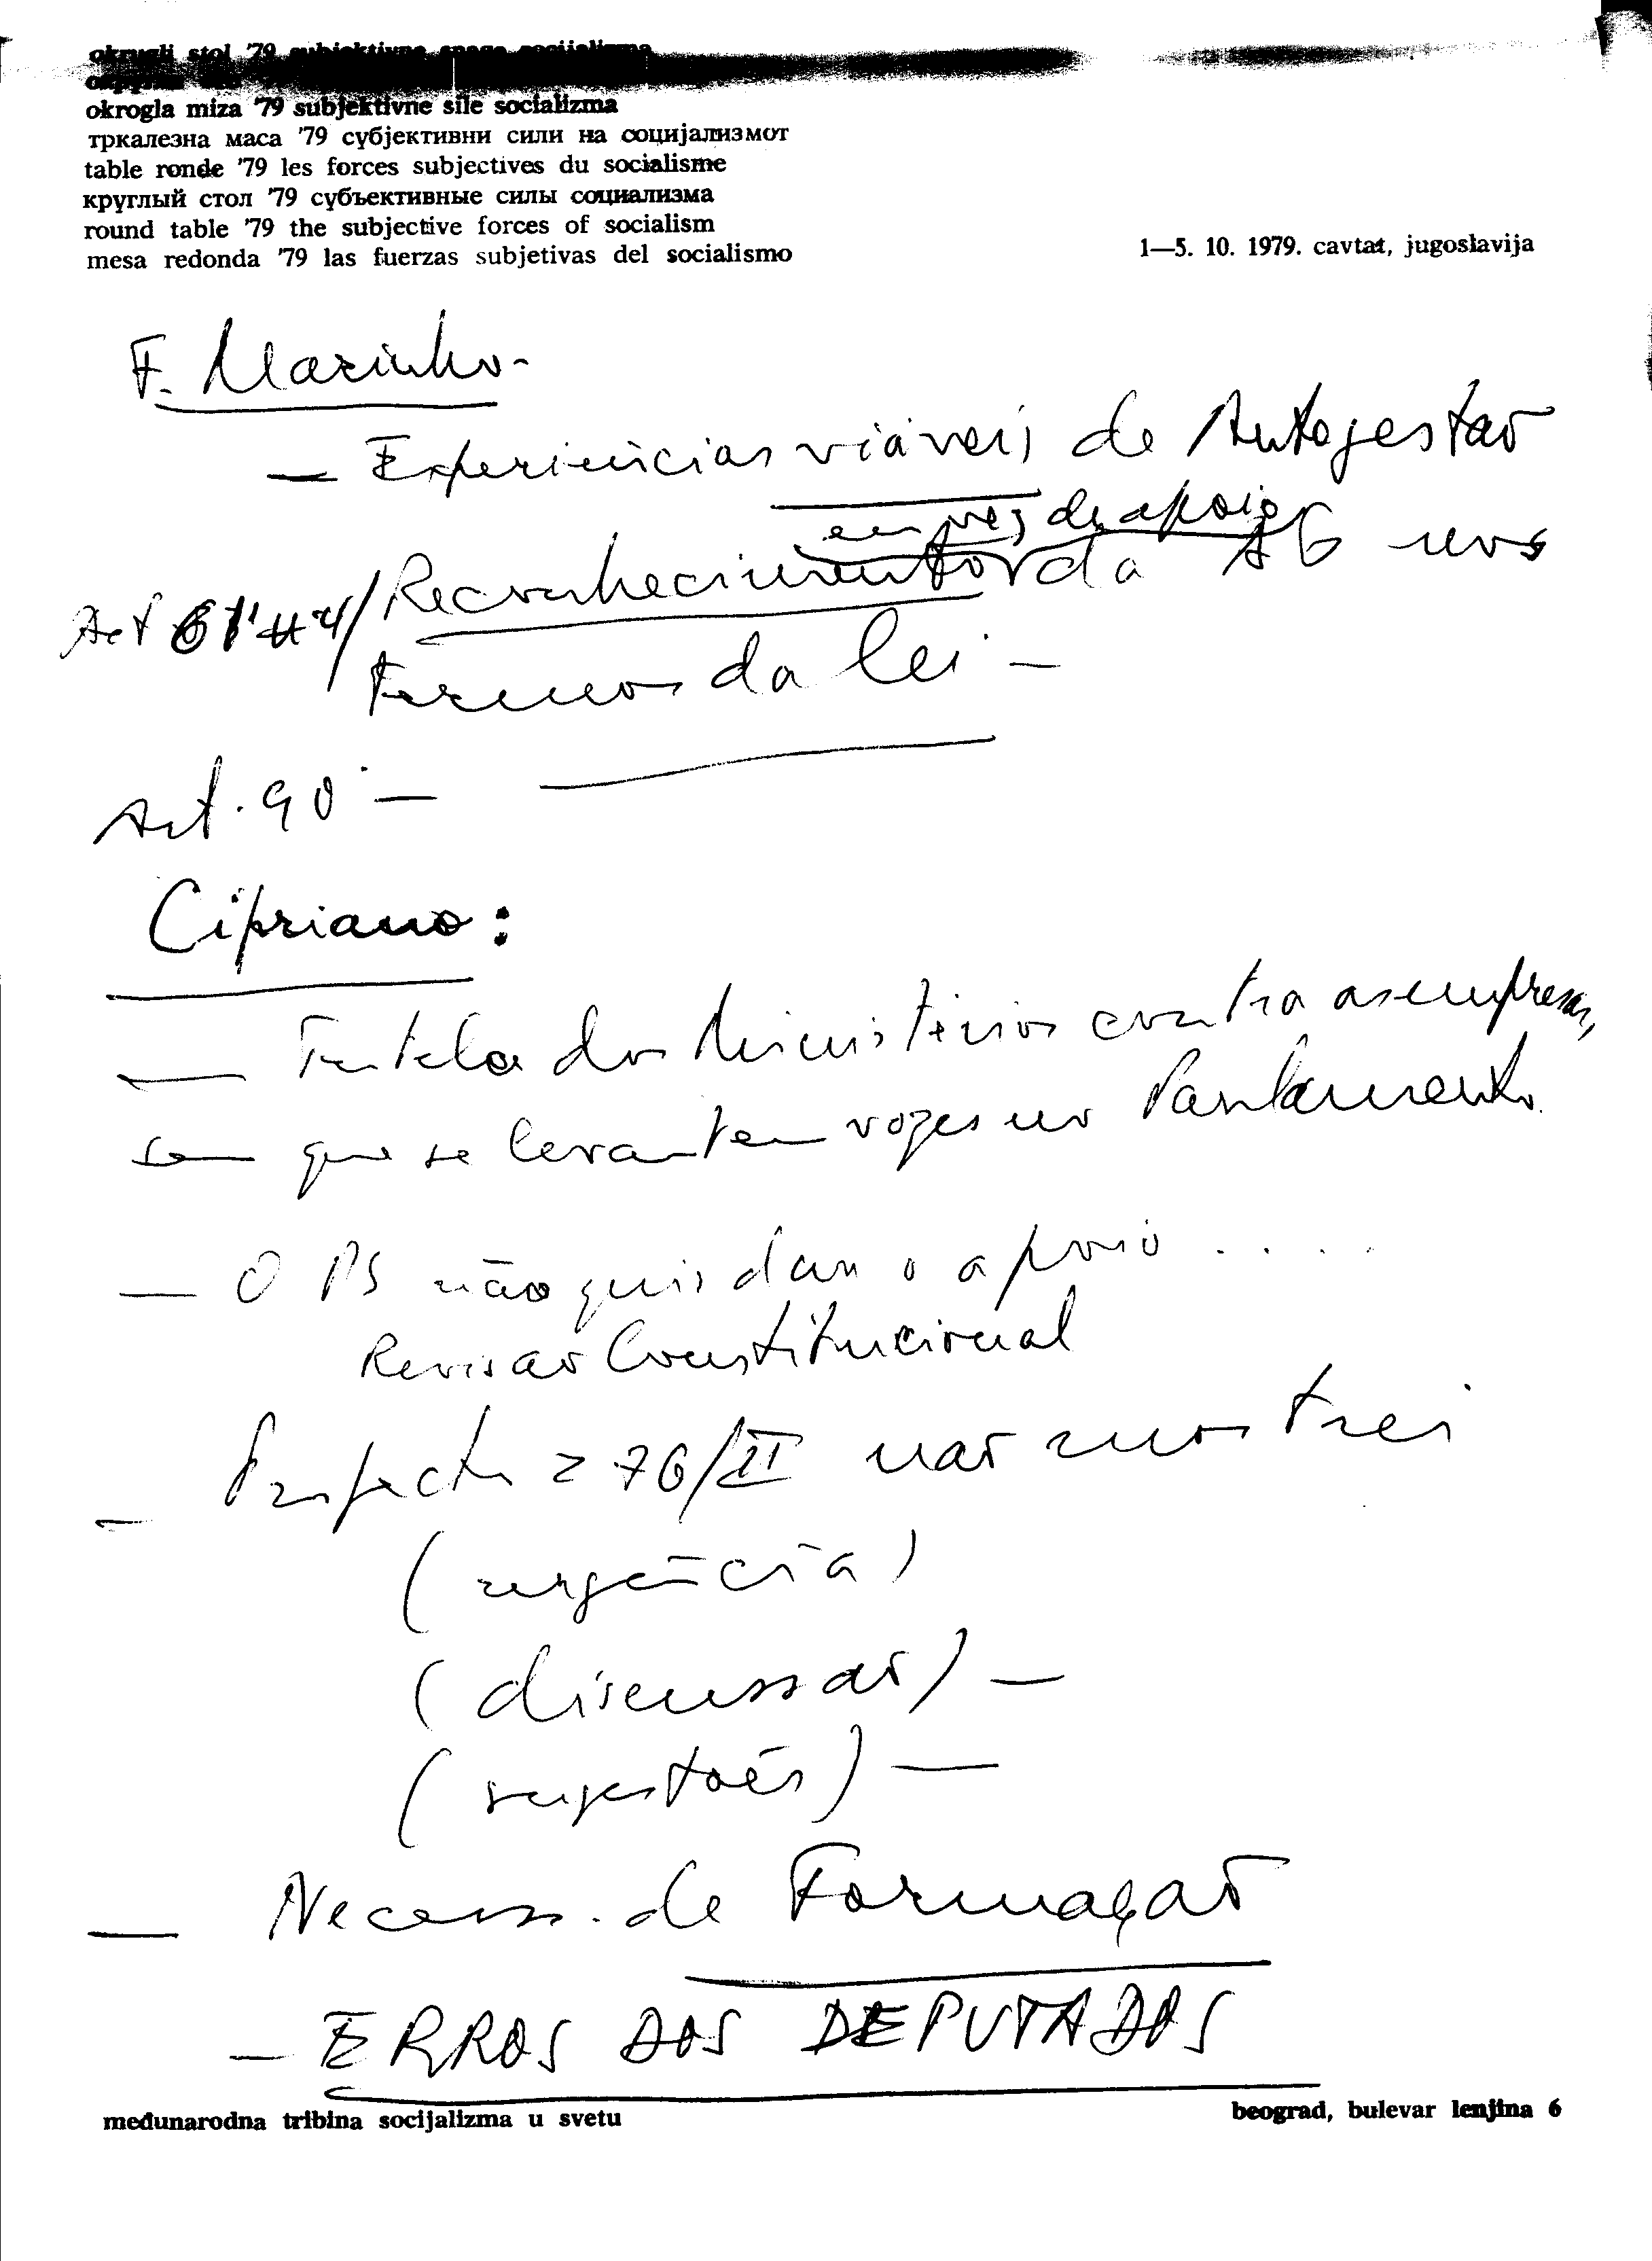 okrugli stol '79 subjektivne snage socijalizma
okrogla miza '79 subjektivne sile socializma
тркалезна маса '79 субјективни сили на социјализмот
table ronde '79 les forces subjectives du socialisme
круглый стол '79 субъективные силы социализма
round table '79 the subjective forces of socialism
mesa redonda '79 las fuerzas subjetivas del socialismo
1—5. 10. 1979. cavtat, jugoslavija
F. Marinho -
— Experiências viáveis de Autogestão
em vez de apoio
Art 61º nº 4 / Reconhecimento da AG nos
termos da lei —
Art. 90º —
Cipriano:
— Tutela dos Ministérios contra as empresas,
sem que se levantem vozes no Parlamento.
— O PS não quis dar o apoio .....
Revisão Constitucional
— Projecto 276/II não mostrei
(urgência)
(discussão) —
(sugestões) —
— Necess. de Formação
— ERROS DOS DEPUTADOS
međunarodna tribina socijalizma u svetu
beograd, bulevar lenjina 6